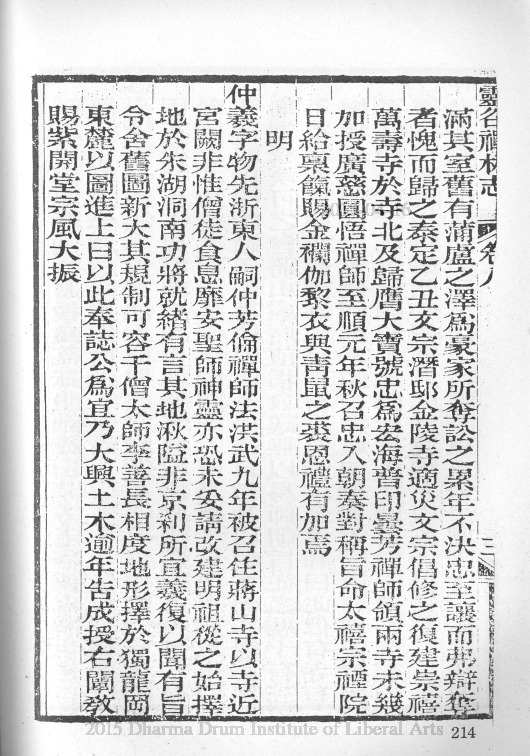 靈谷禪林志 卷八 三
滿其室舊有蒲盧之澤爲豪家所奪訟之累年不決忠至讓而弗辯奪
者愧而歸之泰定乙丑文宗潛邸金陵寺適災文宗倡修之復建崇禧
萬壽寺於寺北及歸膺大寶號忠爲宏海普印曇芳禪師領兩寺未幾
加授廣慈圓悟禪師至順元年秋召忠入朝奏對稱旨命太禧宗禋院
日給稟餼賜金襴伽黎衣與靑鼠之裘恩禮有加焉
明
仲義字物先浙東人嗣仲芳倫禪師法洪武九年被召住蔣山寺以寺近
宮闕非惟僧徒食息靡安聖師神靈亦恐未妥請改建明祖從之始擇
地於朱湖洞南功將就緖有言其地湫隘非京刹所宜義復以聞有旨
令舍舊圖新大其規制可容千僧太師李善長相度地形擇於獨龍岡
東麓以圖進上曰以此奉誌公爲宜乃大興土木逾年告成授右闡敎
賜紫開堂宗風大振
2015 Dharma Drum Institute of Liberal Arts
214